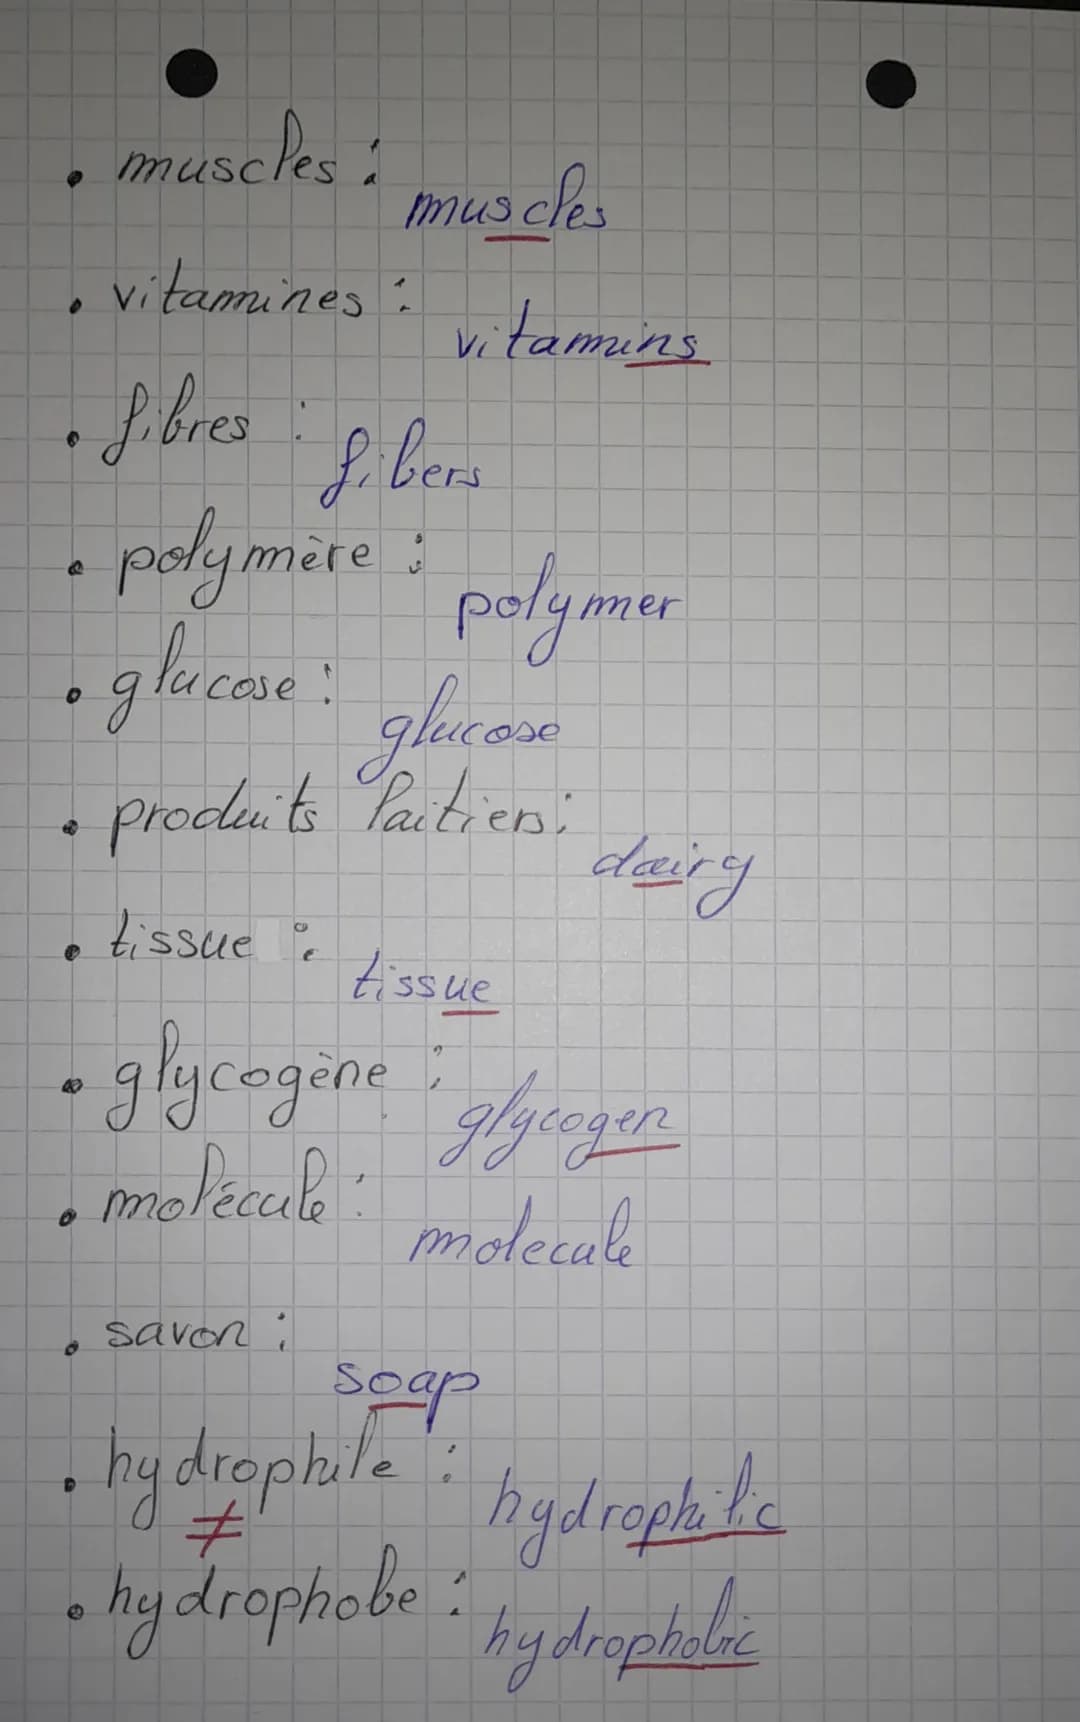 • muscles :
muscles
• vitamines :
vitamins
• fibres :
fibers
• polymère :
polymer
• glucose :
glucose
• produits laitiers :
dairy
• tissue :
tissue
• glycogène :
glycogen
• molécule :
molecule
• savon :
soap
• hydrophile :
hydrophilic
≠
• hydrophobe :
hydrophobic